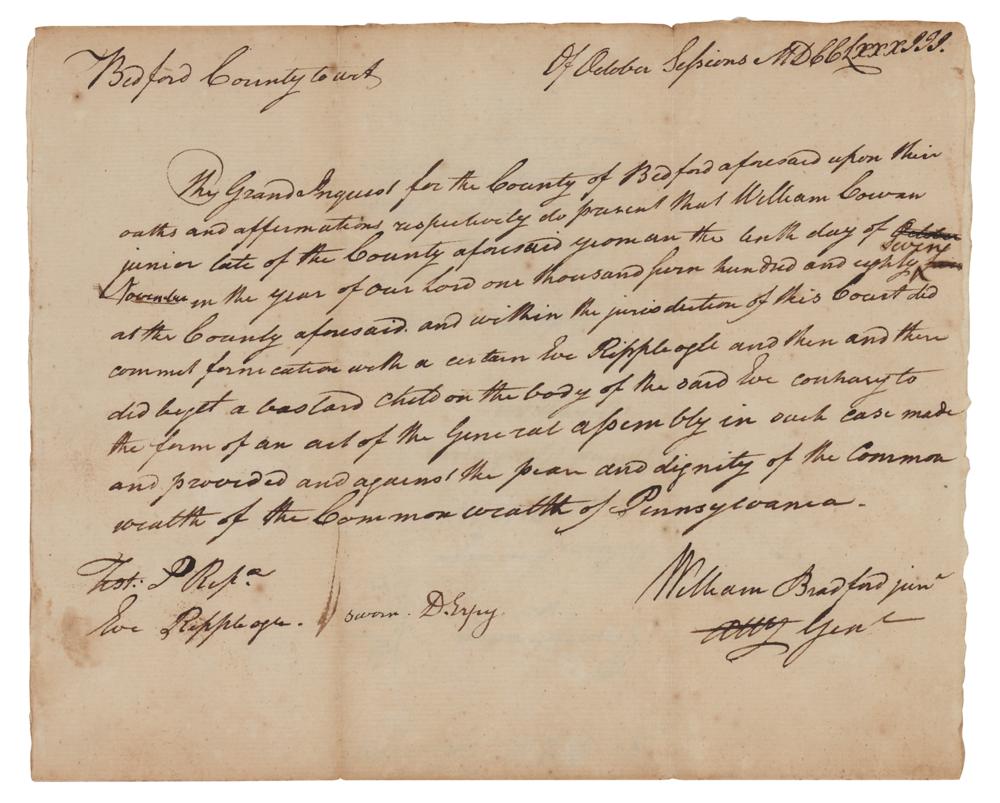 Bedford County Court
Of October Sessions MDCCLXXXIII.
The Grand Inquest for the County of Bedford aforesaid upon their
oaths and affermations respectively do present that William Cowan
junior late of the County aforesaid yeoman the tenth day of October
November in the year of our Lord one thousand seven hundred and eighty
at the County aforesaid. and within the jurisdiction of this Court did
commit fornication with a certain Eve Rippleogle and then and there
did beget a bastard child on the body of the said Eve contrary to
the form of an act of the General assembly in such case made
and provided and against the peace and dignity of the Common
wealth of the Commonwealth of Pennsylvania.
Test: P Resp.a
Eve Rippleogle. sworn. D. Espy
William Bradford junr
Atty Genl